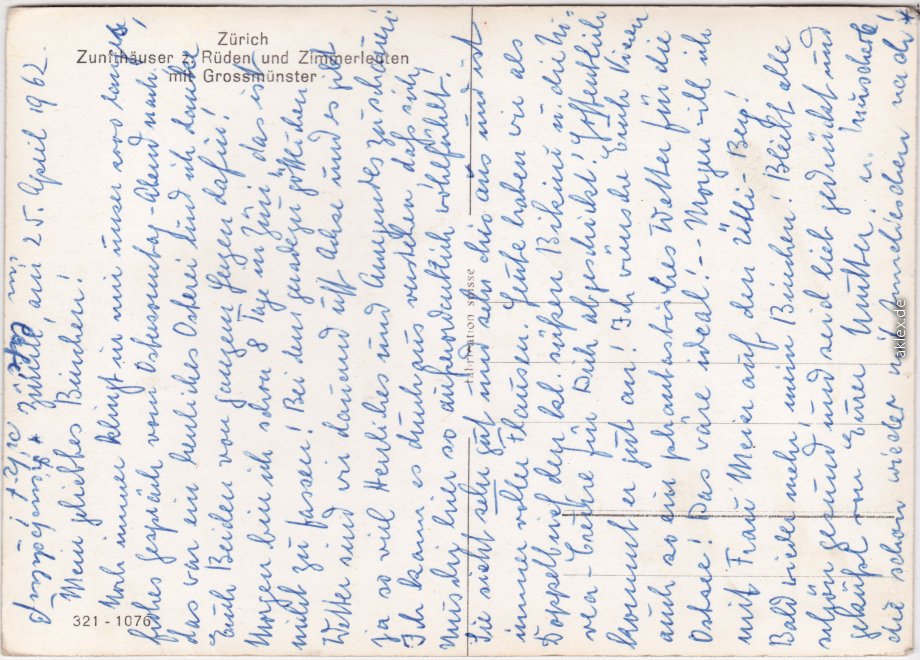 Zürich
Zunfthäuser z. Rüden und Zimmerleuten
mit Grossmünster
321 - 1076
fabrication suisse
aklex.de
Zürich, am 25. April 1962.
Mein geliebtes Bünchen!
Noch immer klingt in mir unser soo
frohes Gespräch vom Ostersonntag-Abend nach,
das war ein herrliches Osterei und ich danke
Euch Beiden von ganzem Herzen dafür!
Morgen bin ich schon 8 Tage in Züri, das ist
nicht zu fassen! Bei dem geradezu göttlichen
Wetter sind wir dauernd uff Achse und es gibt
ja so viel Herrliches und Anregendes zu schauen!
Ich kann es durchaus verstehen, dass sich
Muschy hier so außerordentlich wohlfühlt,
Sie sieht sehr gut und sehr chic aus und ist
immer voller Flausen. Heute haben wir als
Doppelbrief den lsl. süßen Bikini u. die
für Dich abgeschickt! Hoffentlich
kommt er gut an! Ich wünsche Euch Vieren
auch so ein phantastisches Wetter für die
Ostsee! Das wäre ideal! - Morgen will ich
mit Frau Meier auf den Ütli-Berg!
Bald wieder mehr, mein Bünchen! Bleibt alle
schön gesund und seid lieb gedrückt und
geküsst von Eurer Mutter u. Muscherl
die schon wieder